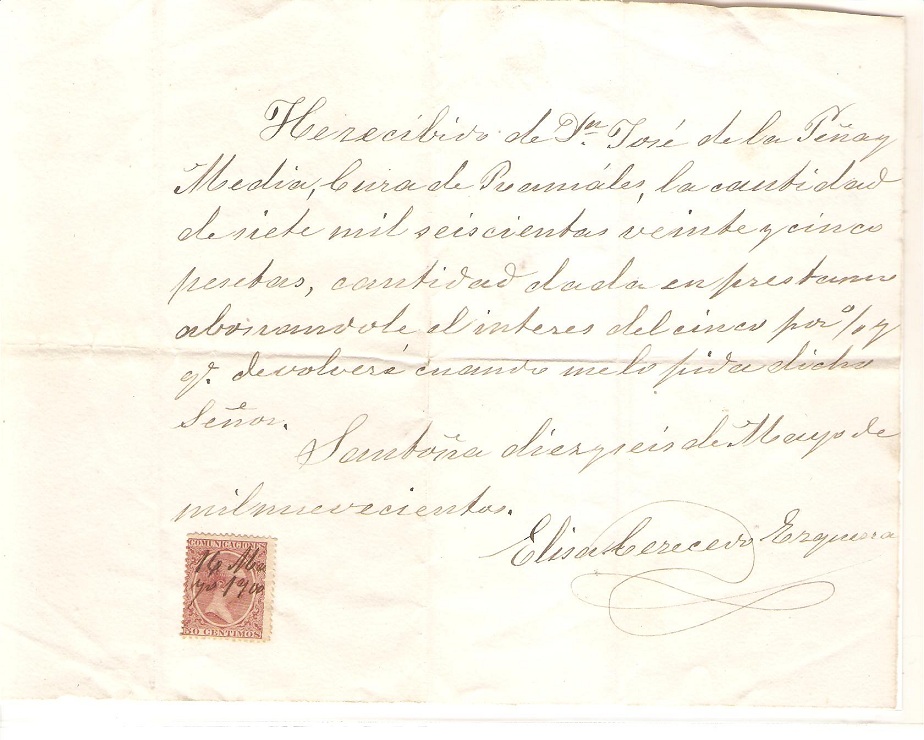 He recibido de Dn. José de la Peña y
Media, Cura de Praméles, la cantidad
de siete mil seiscientas veinte y cinco
pesetas, cantidad dada en prestamo
abonandole el interes del cinco por % y
qe. devolveré cuando me lo pida dicho
Señor.
Santoña diez y seis de Mayo de
mil nuevecientos.
Elisa Cerecedo Ezquerra
COMUNICACIONES
16 Ma
yo 1900
50 CENTIMOS